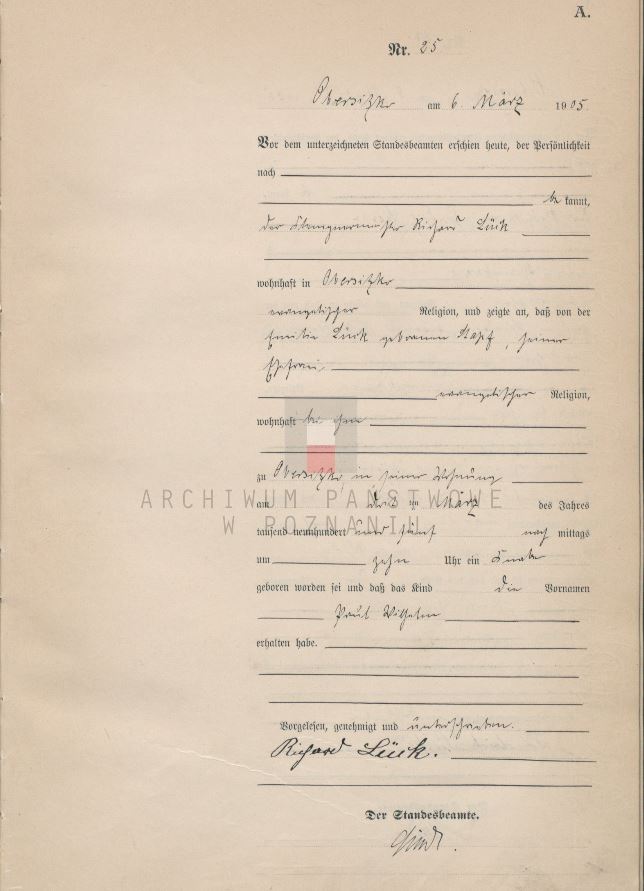 A.
Nr. 25
Obersitzko am 6. März 1905
Vor dem unterzeichneten Standesbeamten erschien heute, der Persönlichkeit
nach
be kannt,
der Klempnermeister Richard Lück
wohnhaft in Obersitzko
evangelischer Religion, und zeigte an, daß von der
Emilie Lück geborenen Stapf, seiner
Ehefrau
evangelischer Religion,
wohnhaft bei ihm
zu Obersitzko, in seiner Wohnung
am März des Jahres
tausend neunhundert und fünf nach mittags
um zehn Uhr ein Knabe
geboren worden sei und daß das Kind die Vornamen
Paul Wilhelm
erhalten habe.
Vorgelesen, genehmigt und unterschrieben.
Richard Lück.
Der Standesbeamte.
ARCHIWUM PAŃSTWOWE
W POZNANIU